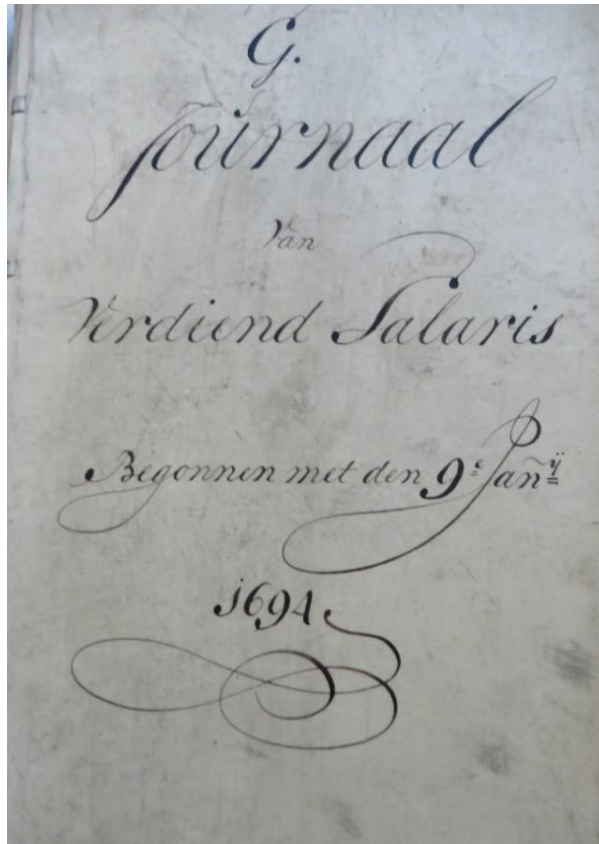 G.
Journaal
Van
Verdiend Salaris
Begonnen met den 9e Janij
1694